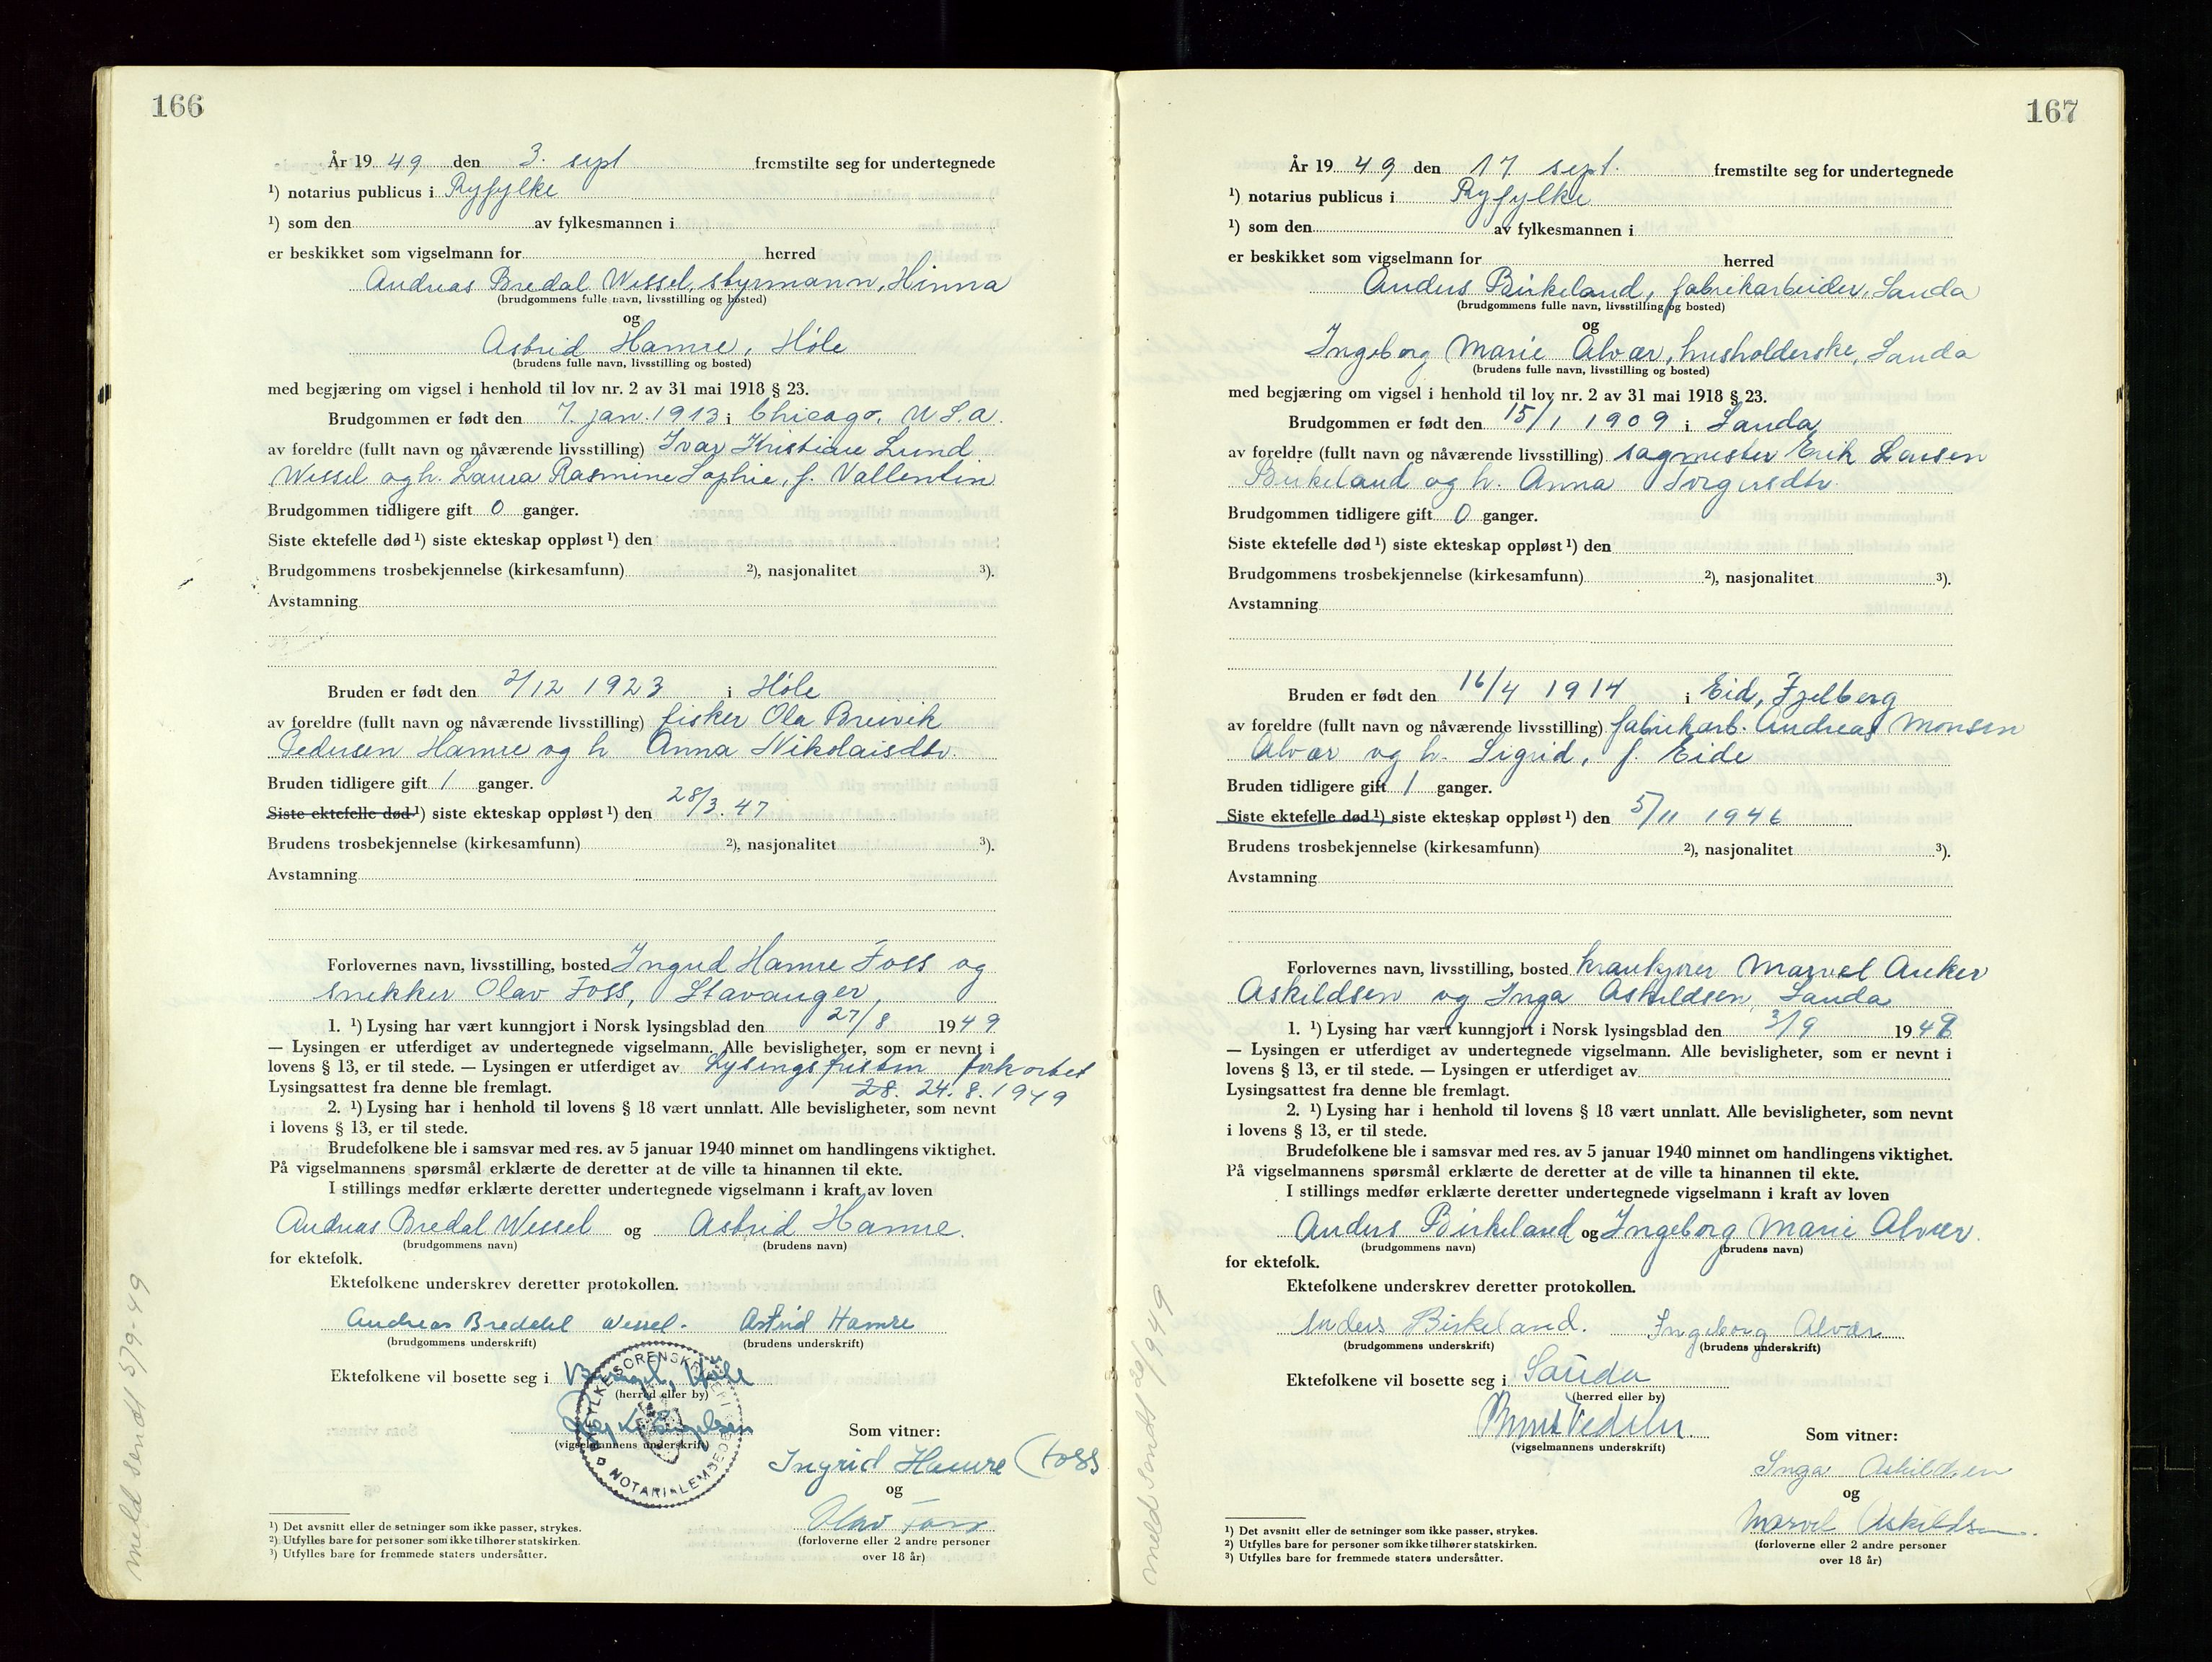 166
År 19 49 den 3. sept fremstilte seg for undertegnede
¹) notarius publicus i Ryfylke
¹) som den av fylkesmannen i
er beskikket som vigselmann for herred
Andreas Bredal Wessel, styrmann, Hinna
(brudgommens fulle navn, livsstilling og bosted)
og
Astrid Hamre, Høle
(brudens fulle navn, livsstilling og bosted)
med begjæring om vigsel i henhold til lov nr. 2 av 31 mai 1918 § 23.
Brudgommen er født den 7. jan. 1913 i Chicago, U.S.a.
av foreldre (fullt navn og nåværende livsstilling) Ivar Kristian Lund
Wessel og h. Laura Rasmine Sophie, f. Vallentin
Brudgommen tidligere gift 0 ganger.
Siste ektefelle død ¹) siste ekteskap oppløst ¹) den
Brudgommens trosbekjennelse (kirkesamfunn) ²), nasjonalitet ³).
Avstamning
Bruden er født den 2/12 1923 i Høle
av foreldre (fullt navn og nåværende livsstilling) fisker Ola Breivik
Pedersen Hamre og h Anna Nikolaisdtr.
Bruden tidligere gift 1 ganger.
Siste ektefelle død ¹) siste ekteskap oppløst ¹) den 28/3. 47
Brudens trosbekjennelse (kirkesamfunn) ²), nasjonalitet ³).
Avstamning
Forlovernes navn, livsstilling, bosted Ingrid Hamre Foss og
snekker Olav Foss, Stavanger,
1. ¹) Lysing har vært kunngjort i Norsk lysingsblad den 27/8 1949
— Lysingen er utferdiget av undertegnede vigselmann. Alle bevisligheter, som er nevnt i
lovens § 13, er til stede. — Lysingen er utferdiget av Lysingsfristen forkortet
Lysingsattest fra denne ble fremlagt. 28. 24.8.1949
2. ¹) Lysing har i henhold til lovens § 18 vært unnlatt. Alle bevisligheter, som nevnt
i lovens § 13, er til stede.
Brudefolkene ble i samsvar med res. av 5 januar 1940 minnet om handlingens viktighet.
På vigselmannens spørsmål erklærte de deretter at de ville ta hinannen til ekte.
I stillings medfør erklærte deretter undertegnede vigselmann i kraft av loven
Andreas Bredal Wessel og Astrid Hamre.
(brudgommens navn) (brudens navn)
for ektefolk.
Ektefolkene underskrev deretter protokollen.
Andreas Bredahl Wessel. Astrid Hamre
(brudgommens underskrift) (brudens underskrift)
Ektefolkene vil bosette seg i Høle
(herred eller by)
(vigselmannens underskrift)
NOTARIALEMBEDE
Som vitner:
Ingrid Hamre Foss
og
Olav Foss
(forloverne eller 2 andre personer
over 18 år)
¹) Det avsnitt eller de setninger som ikke passer, strykes.
²) Utfylles bare for personer som ikke tilhører statskirken.
³) Utfylles bare for fremmede staters undersåtter.
meld sendt 5/9-49
167
År 19 49 den 17 sept. fremstilte seg for undertegnede
¹) notarius publicus i Ryfylke
¹) som den av fylkesmannen i
er beskikket som vigselmann for herred
Anders Birkeland, fabrikarbeider, Sauda
(brudgommens fulle navn, livsstilling og bosted)
og
Ingeborg Marie Alvær, husholderske, Sauda
(brudens fulle navn, livsstilling og bosted)
med begjæring om vigsel i henhold til lov nr. 2 av 31 mai 1918 § 23.
Brudgommen er født den 15/1 1909 i Sauda
av foreldre (fullt navn og nåværende livsstilling) sagmester Erik Larsen
Birkeland og h. Anna Torgersdtr.
Brudgommen tidligere gift 0 ganger.
Siste ektefelle død ¹) siste ekteskap oppløst ¹) den
Brudgommens trosbekjennelse (kirkesamfunn) ²), nasjonalitet ³).
Avstamning
Bruden er født den 16/4 1914 i Eid, Fjelberg
av foreldre (fullt navn og nåværende livsstilling) fabrikarb. Andreas Monsen
Alvær og h. Sigrid, f. Eide
Bruden tidligere gift 1 ganger.
Siste ektefelle død ¹) siste ekteskap oppløst ¹) den 5/11 1946
Brudens trosbekjennelse (kirkesamfunn) ²), nasjonalitet ³).
Avstamning
Forlovernes navn, livsstilling, bosted krankjører Marvel Anker
Askildsen og Inga Askildsen, Sauda
1. ¹) Lysing har vært kunngjort i Norsk lysingsblad den 3/9 1949
— Lysingen er utferdiget av undertegnede vigselmann. Alle bevisligheter, som er nevnt i
lovens § 13, er til stede. — Lysingen er utferdiget av
Lysingsattest fra denne ble fremlagt.
2. ¹) Lysing har i henhold til lovens § 18 vært unnlatt. Alle bevisligheter, som nevnt
i lovens § 13, er til stede.
Brudefolkene ble i samsvar med res. av 5 januar 1940 minnet om handlingens viktighet.
På vigselmannens spørsmål erklærte de deretter at de ville ta hinannen til ekte.
I stillings medfør erklærte deretter undertegnede vigselmann i kraft av loven
Anders Birkeland og Ingeborg Marie Alvær.
(brudgommens navn) (brudens navn)
for ektefolk.
Ektefolkene underskrev deretter protokollen.
Anders Birkeland. Ingeborg Alvær
(brudgommens underskrift) (brudens underskrift)
Ektefolkene vil bosette seg i Sauda
(herred eller by)
(vigselmannens underskrift)
Som vitner:
Inga Askildsen
og
Marvel Askildsen.
(forloverne eller 2 andre personer
over 18 år)
¹) Det avsnitt eller de setninger som ikke passer, strykes.
²) Utfylles bare for personer som ikke tilhører statskirken.
³) Utfylles bare for fremmede staters undersåtter.
meld sendt 20/9 49